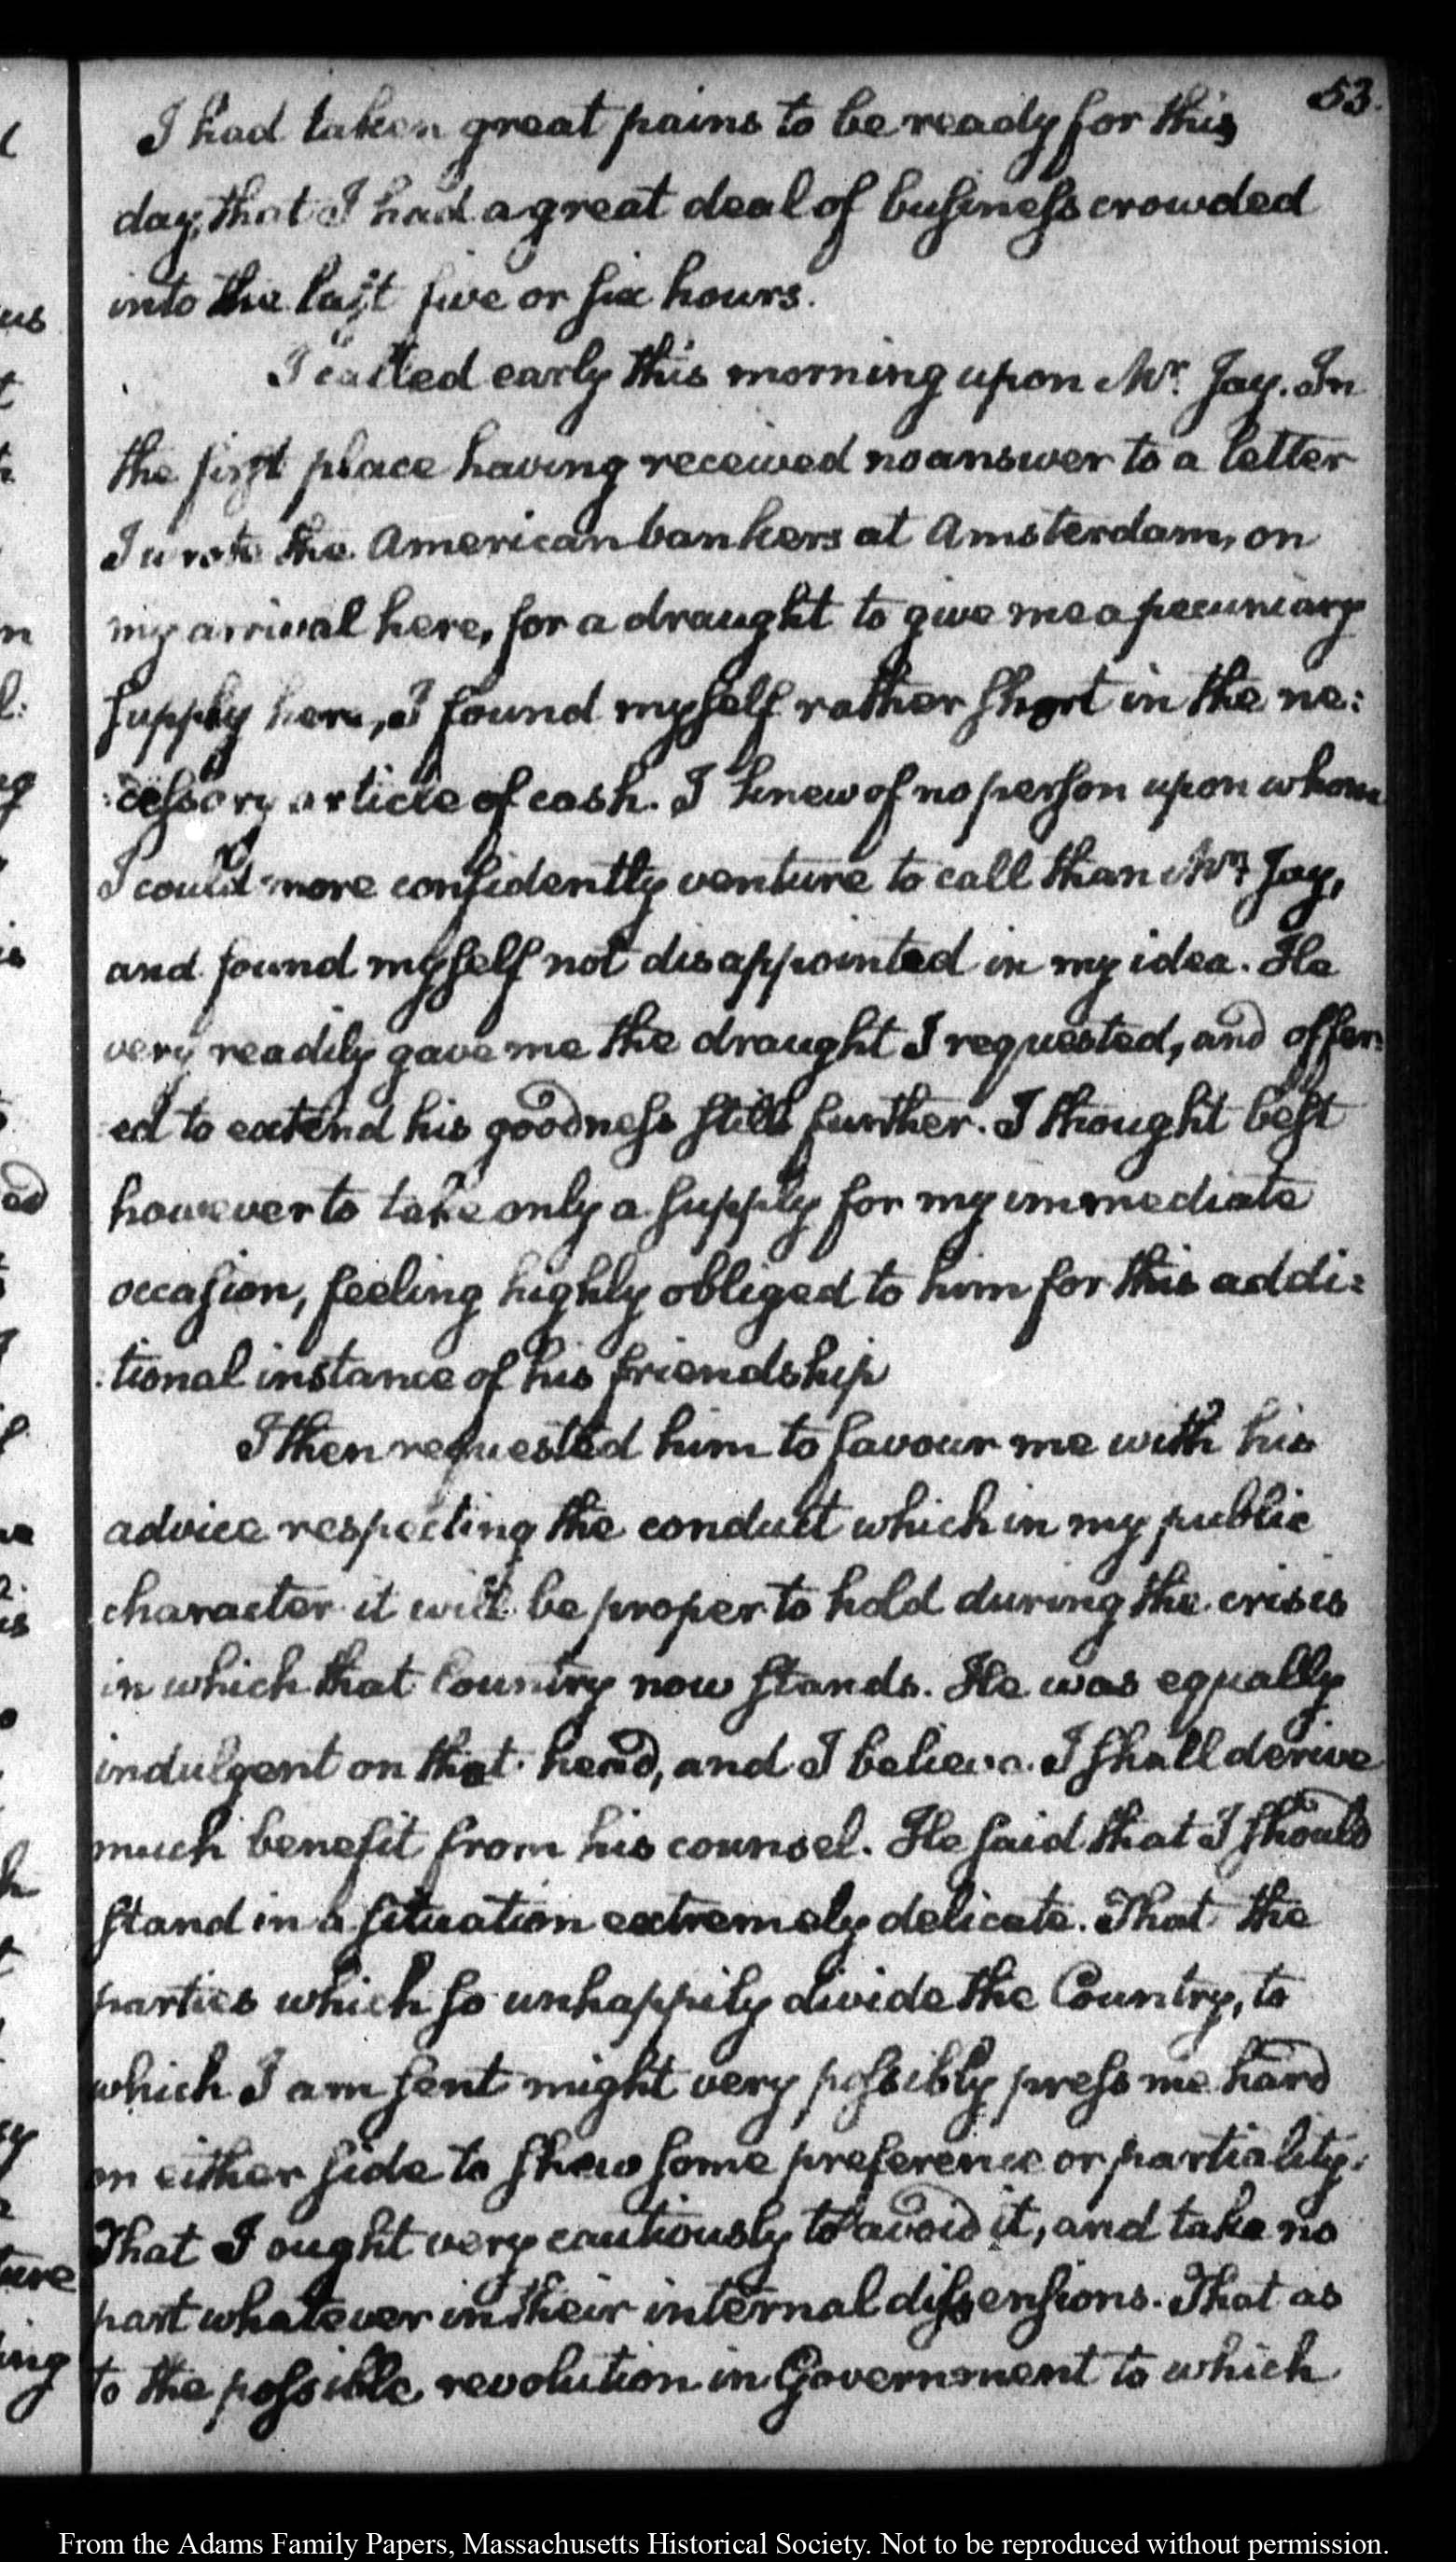 53.
I had taken great pains to be ready for this
day, that I had a great deal of business crowded
into the last five or six hours.
I called early this morning upon Mr. Jay. In
the first place having received no answer to a letter
I wrote the American bankers at Amsterdam, on
my arrival here, for a draught to give me a pecuniary
supply here, I found myself rather short in the ne:
:cessary article of cash. I knew of no person upon whom
I could more confidently venture to call than Mr. Jay,
and found myself not disappointed in my idea. He
very readily gave me the draught I requested, and offer:
ed to extend his goodness still further. I thought best
however to take only a supply for my immediate
occasion, feeling highly obliged to him for this addi:
:tional instance of his friendship
I then requested him to favour me with his
advice respecting the conduct which in my public
character it will be proper to hold during the crisis
in which that Country now stands. He was equally
indulgent on that head, and I believe I shall derive
much benefit from his counsel. He said that I should
stand in a situation extremely delicate. That the
parties which so unhappily divide the Country, to
which I am sent might very possibly press me hard
on either side to shew some preference or partiality.
That I ought very cautiously to avoid it, and take no
part whatever in their internal dissensions. That as
to the possible revolution in Government to which
From the Adams Family Papers, Massachusetts Historical Society. Not to be reproduced without permission.